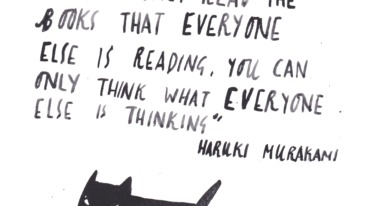 READ THE
BOOKS THAT EVERYONE
ELSE IS READING, YOU CAN
ONLY THINK WHAT EVERYONE
ELSE IS THINKING"
HARUKI MURAKAMI